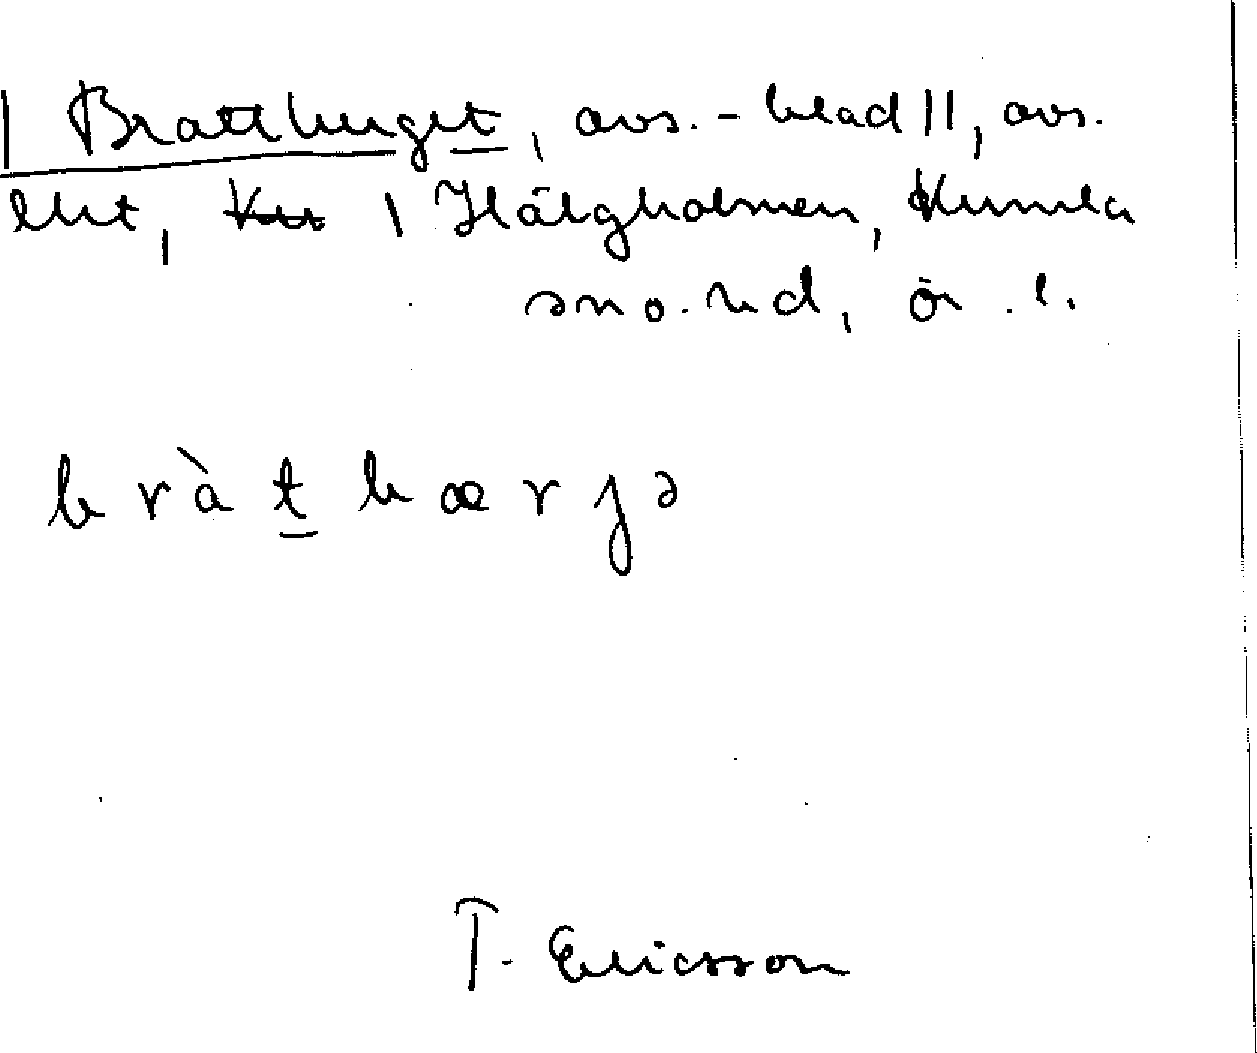 | Brattberget, avs. - blad 11, avs.
lht, | Hälgholmen, Kumla
sn o. hd, ör. l.
bràt bærjə
T. Ericsson